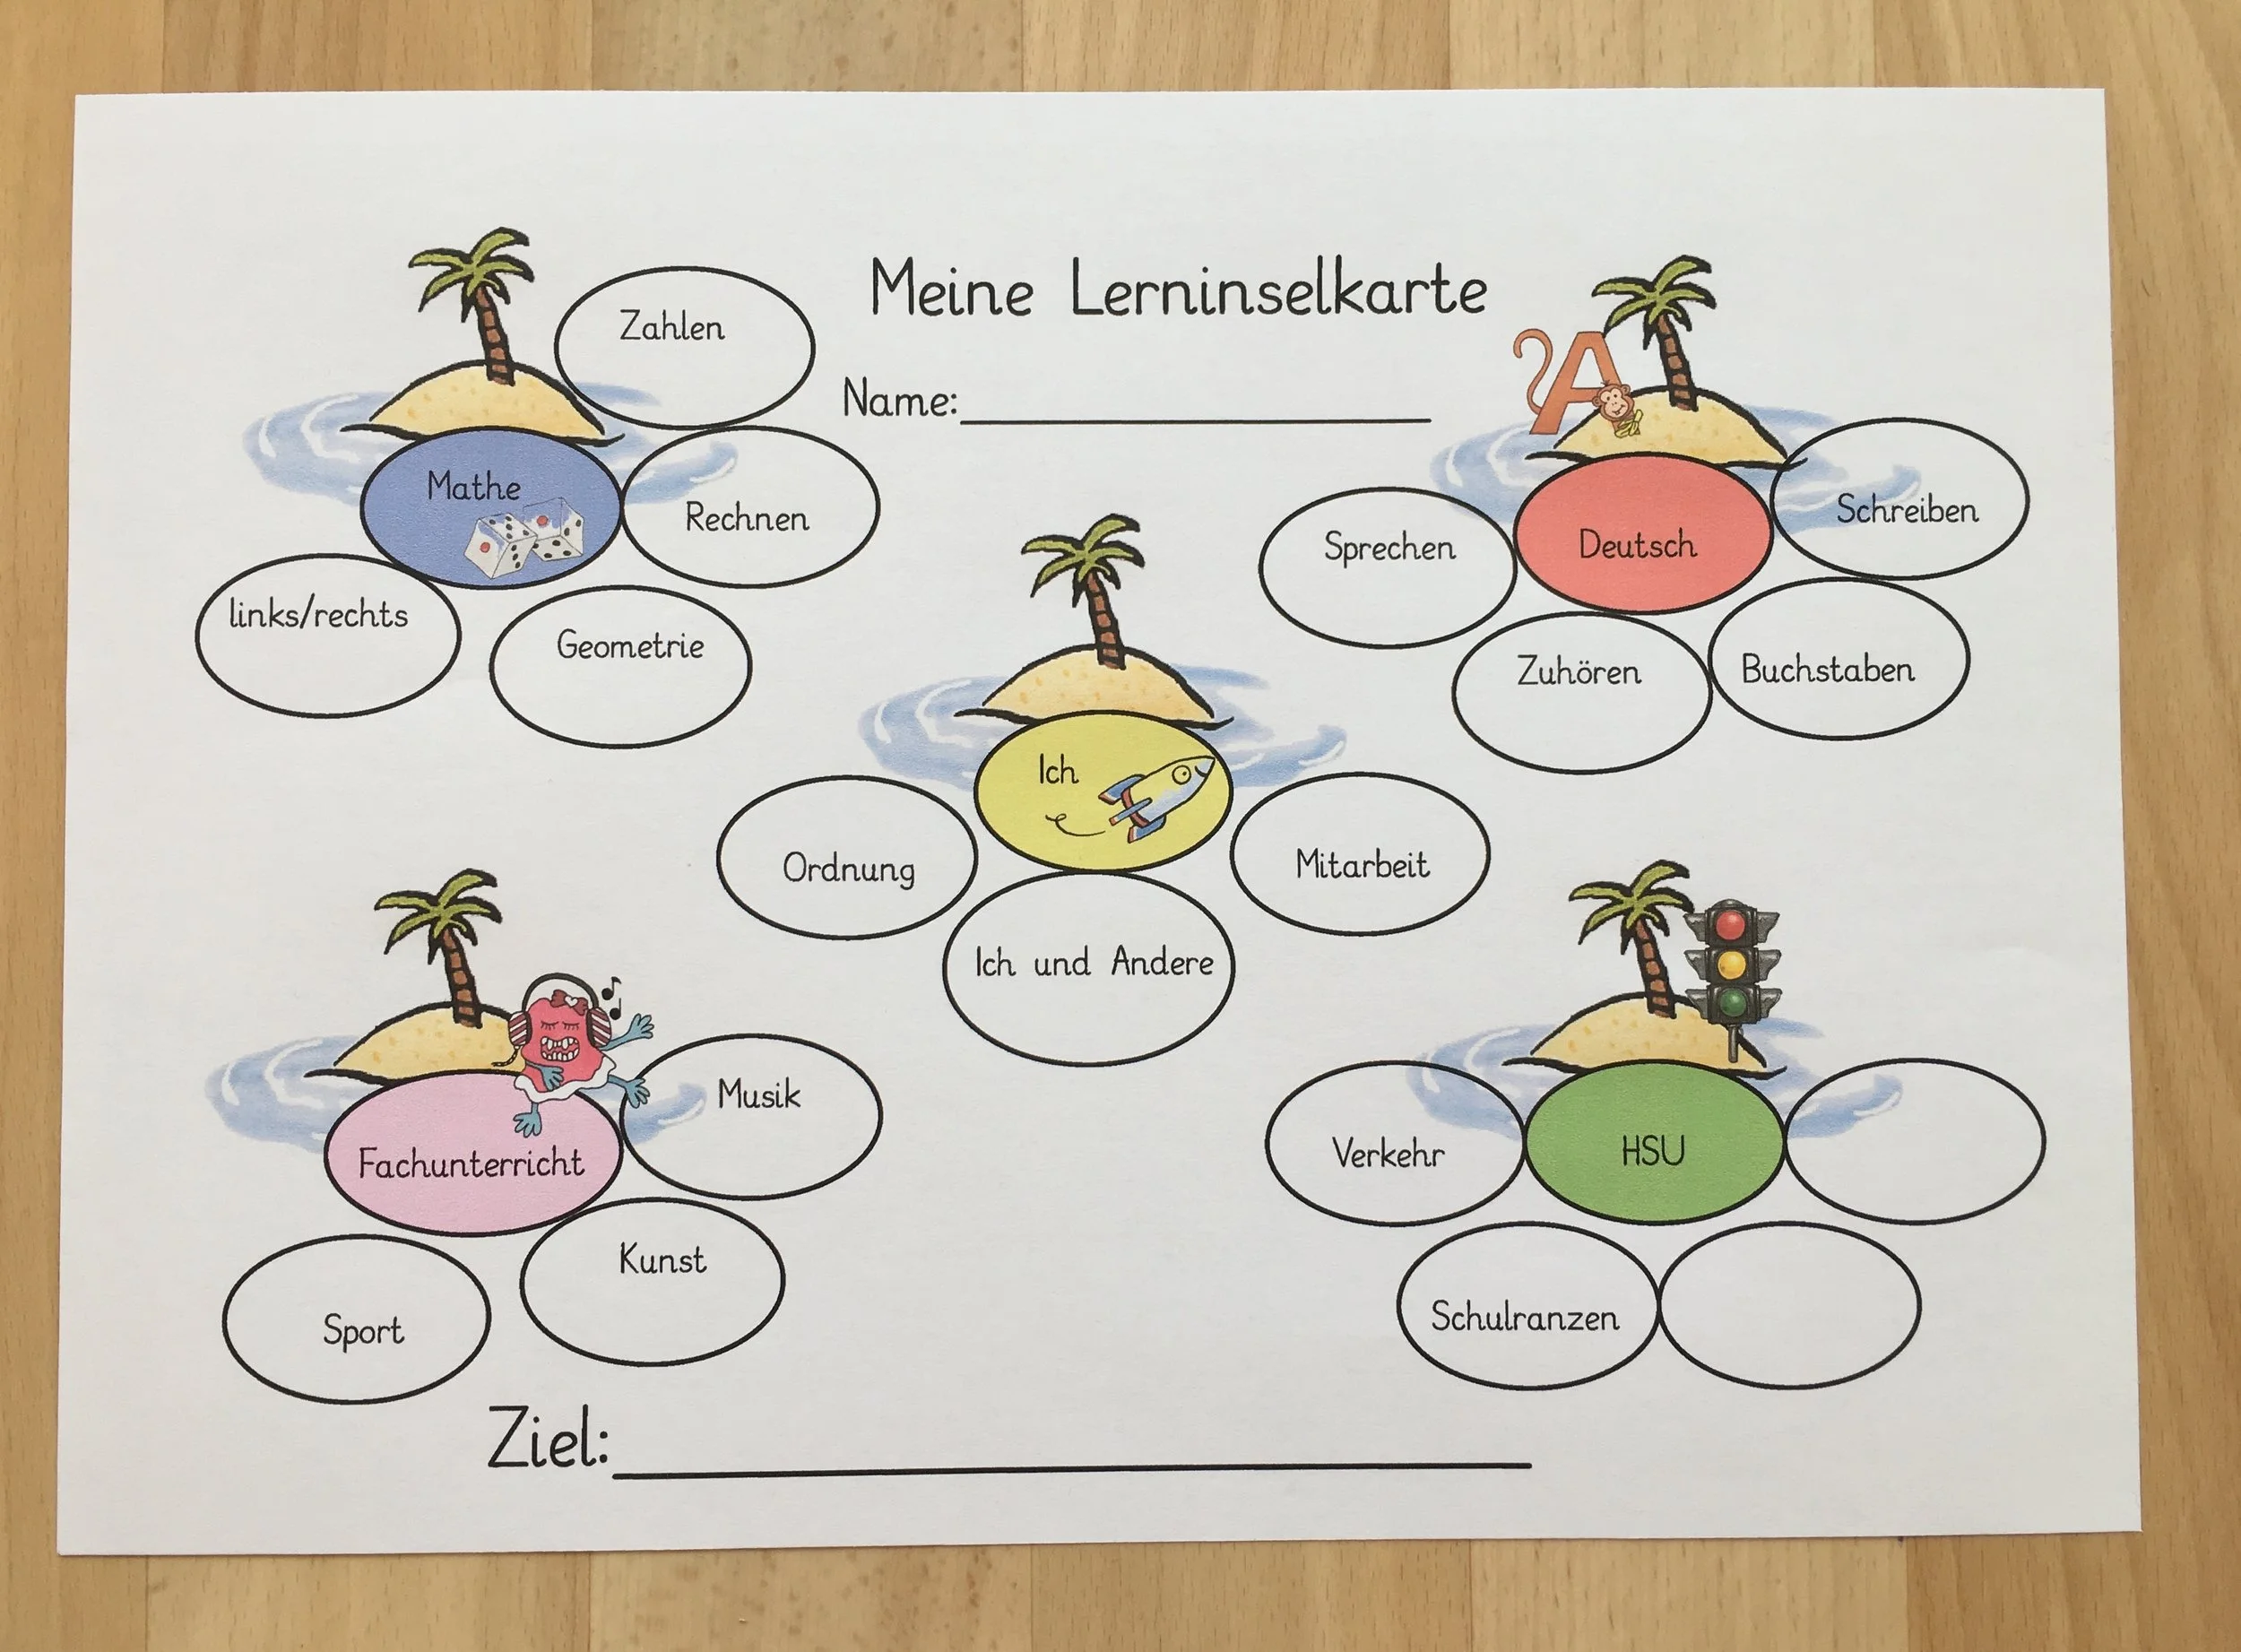 Meine Lerninselkarte
Name:
Zahlen
Mathe
Rechnen
links/rechts
Geometrie
A
Deutsch
Schreiben
Sprechen
Zuhören
Buchstaben
Ich
Ordnung
Mitarbeit
Ich und Andere
Fachunterricht
Musik
Kunst
Sport
HSU
Verkehr
Schulranzen
Ziel: